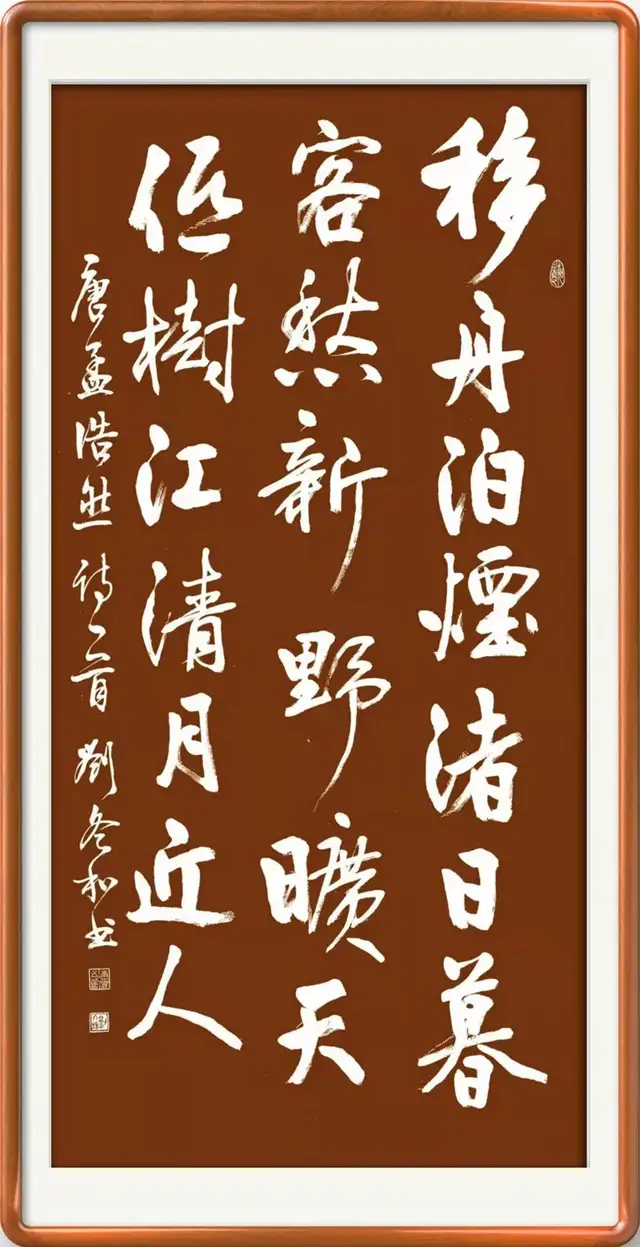 移舟泊煙渚日暮
客愁新野曠天
低樹江清月近人
唐孟浩然诗一首 劉冬和书